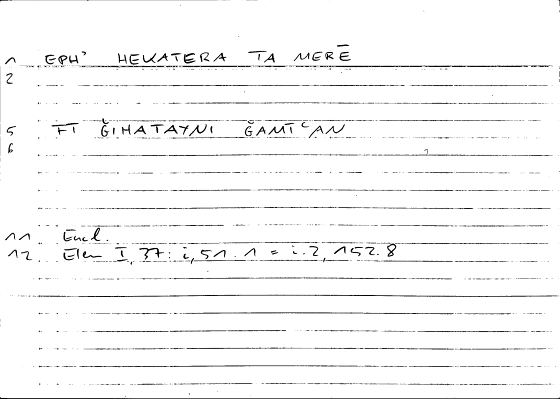 1 EPH' HEKATERA TA MERĒ
2
5 FĪ ǦIHATAYNI ǦAMĪʿAN
6
11 Eucl.
12 Elem I, 37: i, 51. 1 = i. 2, 152. 8